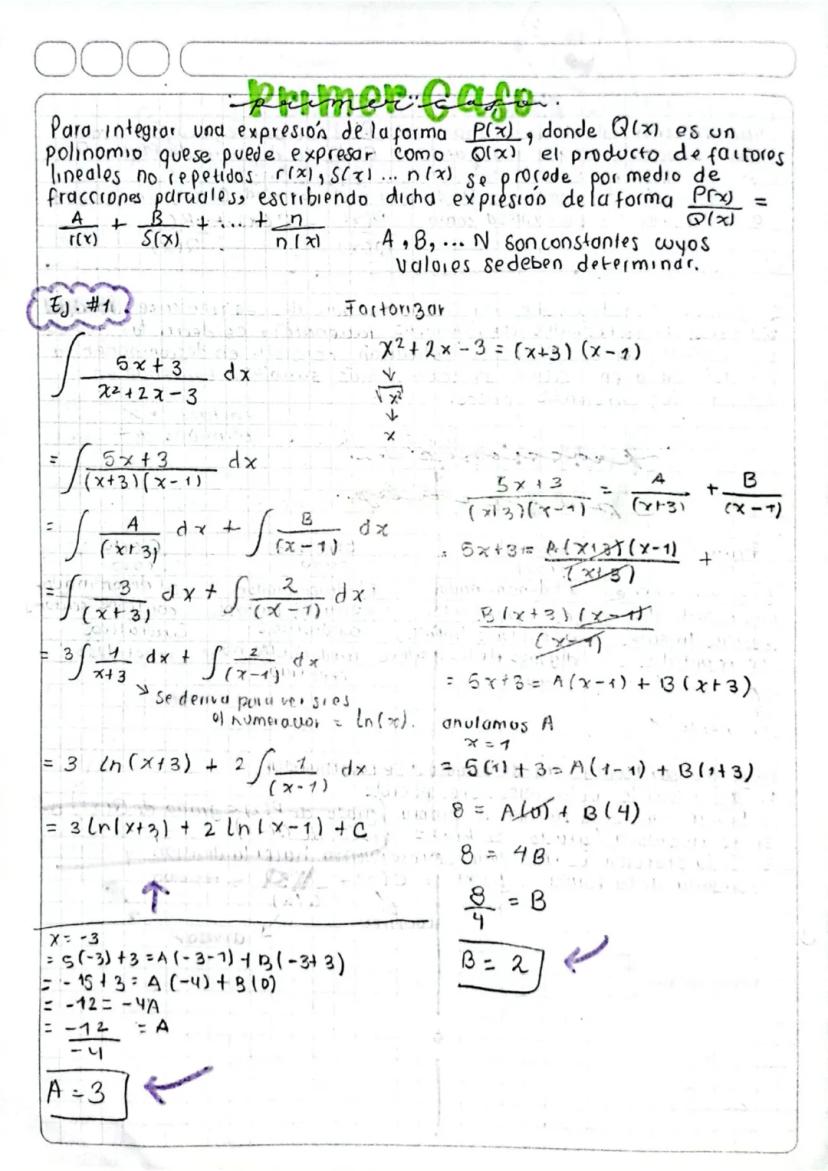 Primer Caso
primer caso.
Para integrar una expresión de la forma P(x)/Q(x), donde Q(x) es un
polinomio que se puede expresar como el producto de factores
lineales no repetidos r(x), s(x) ... n(x) se procede por medio de
fracciones parciales, escribiendo dicha expresión de la forma P(x)/Q(x) =
A/r(x) + B/S(x) + ... + n/n(x) A, B, ... N son constantes cuyos
valores se deben determinar.
Ej #1.
∫ 5x+3/x²+2x-3 dx
= ∫ 5x+3/(x+3)(x-1) dx
= ∫ A/(x+3) dx + ∫ B/(x-1) dx
= ∫ 3/(x+3) dx + ∫ 2/(x-1) dx
= 3∫ 1/x+3 dx + ∫ 2/(x-1) dx
↘ Se deriva para ver si es
el numerador = ln(x).
= 3 ln(x+3) + 2∫ 1/(x-1) dx
= 3 ln(x+3) + 2 ln(x-1) + C
↑
x = -3
= 5(-3)+3 = A(-3-1)+B(-3+3)
= -15+3 = A(-4)+B(0)
= -12 = -4A
= -12/-4 = A
A = 3
Factorizar
x²+2x-3 = (x+3)(x-1)
↓
√x²
↓
x
5x+3/(x+3)(x-1) = A/(x+3) + B/(x-1)
= 5x+3 = A(x+3)(x-1)/(x+3) +
B(x+3)(x-1)/(x-1)
= 5x+3 = A(x-1) + B(x+3)
anulamos A
x = 1
= 5(1)+3 = A(1-1) + B(1+3)
8 = A(0) + B(4)
8 = 4B
8/4 = B
B = 2